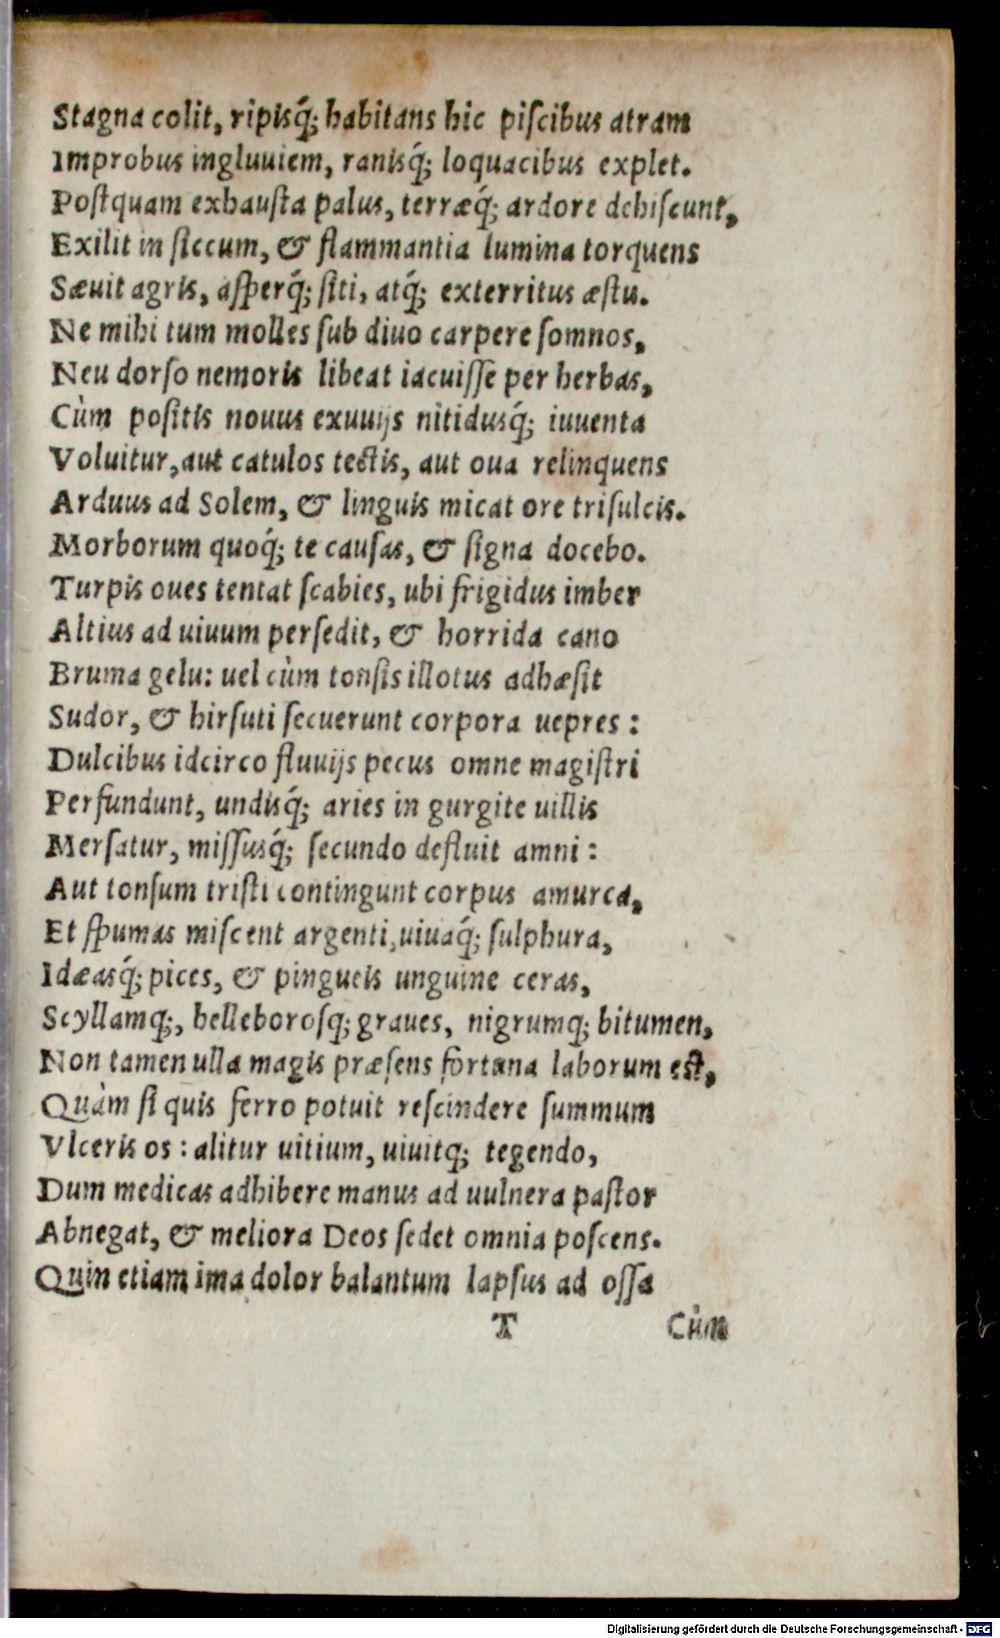 Stagna colit, ripisq́; habitans hic piſcibus atram
Improbus ingluuiem, ranisq́; loquacibus explet.
Poſtquam exhauſta palus, terræq́; ardore dehiſcunt,
Exilit in ſiccum, & flammantia lumina torquens
Sæuit agris, aſperq́; ſiti, atq́; exterritus æſtu.
Ne mihi tum molles ſub diuo carpere ſomnos,
Neu dorſo nemoris libeat iacuiſſe per herbas,
Cùm poſitis nouus exuuijs nitidusq́; iuuenta
Voluitur, aut catulos tectis, aut oua relinquens
Arduus ad Solem, & linguis micat ore triſulcis.
Morborum quoq́; te cauſas, & ſigna docebo.
Turpis oues tentat ſcabies, ubi frigidus imber
Altius ad uiuum perſedit, & horrida cano
Bruma gelu: uel cùm tonſis illotus adhæſit
Sudor, & hirſuti ſecuerunt corpora uepres:
Dulcibus idcirco fluuijs pecus omne magiſtri
Perfundunt, undisq́; aries in gurgite uillis
Merſatur, miſſusq́; ſecundo defluit amni:
Aut tonſum triſti contingunt corpus amurca,
Et ſpumas miſcent argenti, uiuaq́; ſulphura,
Idæasq́; pices, & pingueis unguine ceras,
Scyllamq;, helleboroſq; graues, nigrumq; bitumen,
Non tamen ulla magis præſens fortuna laborum eſt,
Quàm ſi quis ferro potuit reſcindere ſummum
Vlceris os: alitur uitium, uiuitq; tegendo,
Dum medicas adhibere manus ad uulnera paſtor
Abnegat, & meliora Deos ſedet omnia poſcens.
Quin etiam ima dolor balantum lapſus ad oſſa
T Cùm
Digitalisierung gefördert durch die Deutsche Forschungsgemeinschaft - DFG